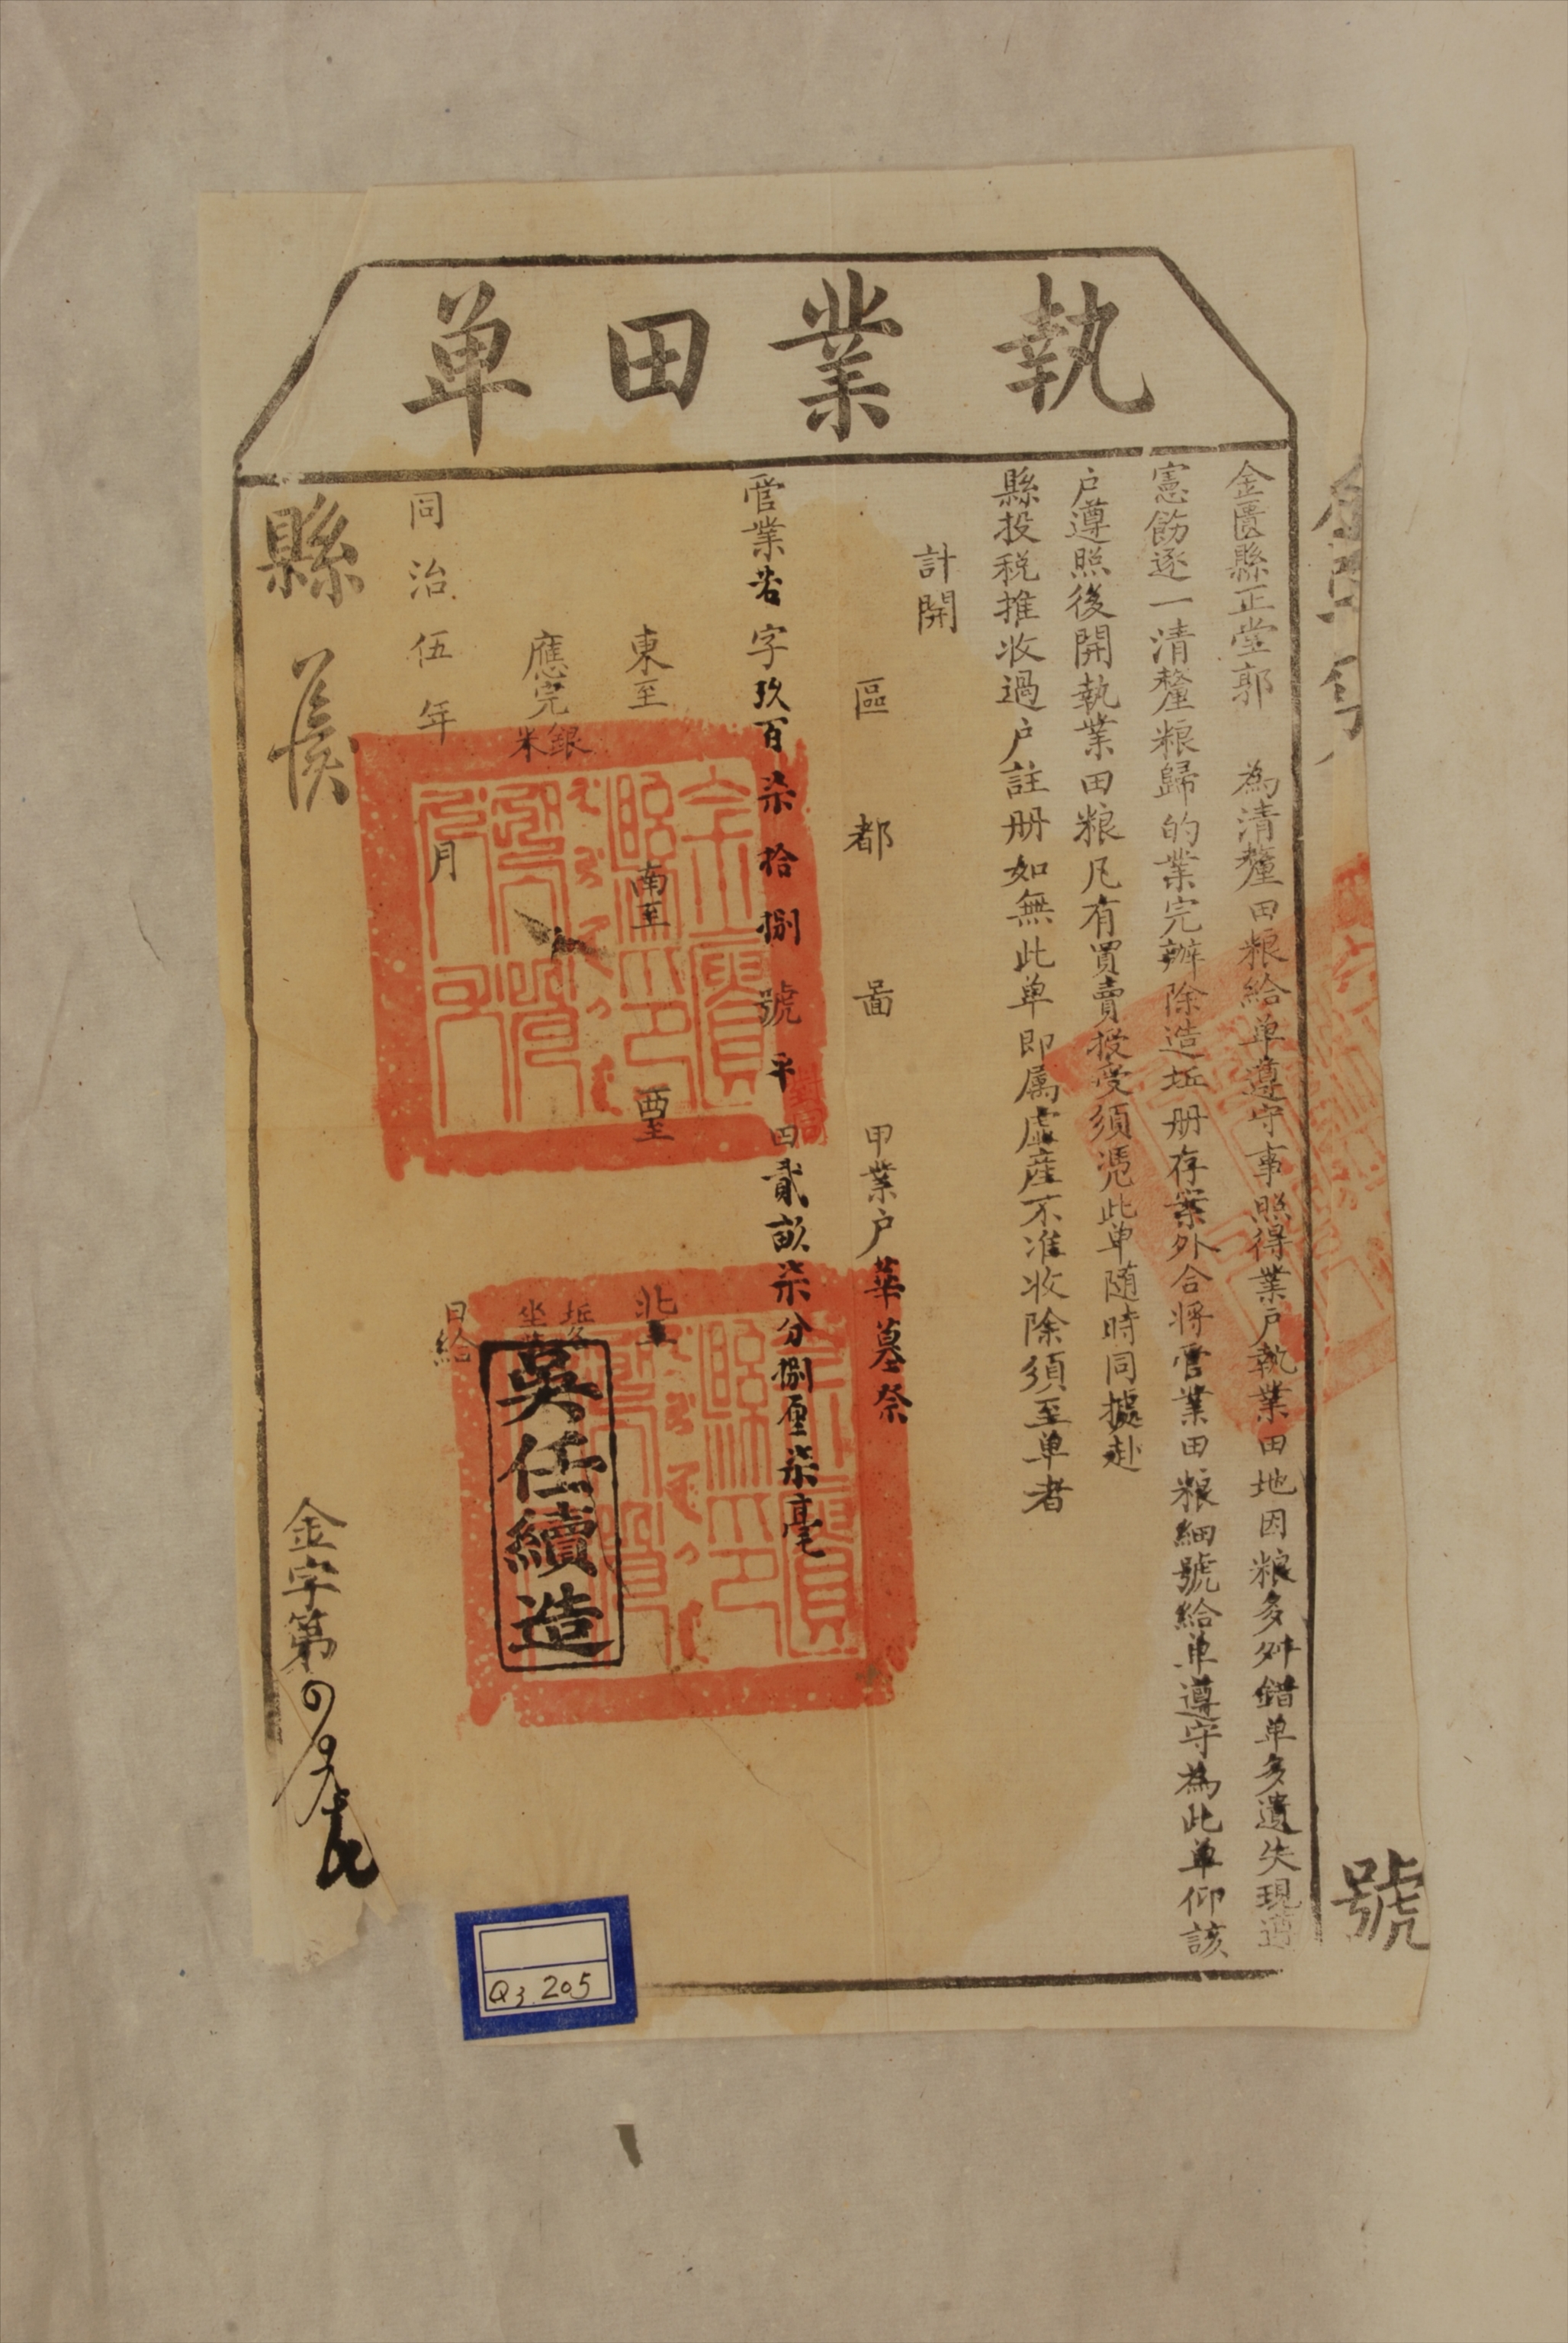 執業田单
號
金匱縣正堂郭 為清釐田粮給单遵守事照得業户執業田地因粮多舛錯单多遺失現遵
憲飭逐一清釐粮歸的業完辦除造坵册存案外合將管業田粮細號給单遵守為此单仰該
户遵照後開執業田粮凡有買賣授受須憑此单随時同據赴
縣投税推收過户註册如無此单即属虛産不准收除須至单者
計開
區 都 啚 甲業户華墓祭
管業 字玖百柒拾捌號平田貳畝柒分捌厘柒毫
東至 南至 西至 北至
應完銀米
吳任續造
同治伍年 月 日給
縣
金字第
Q3.205